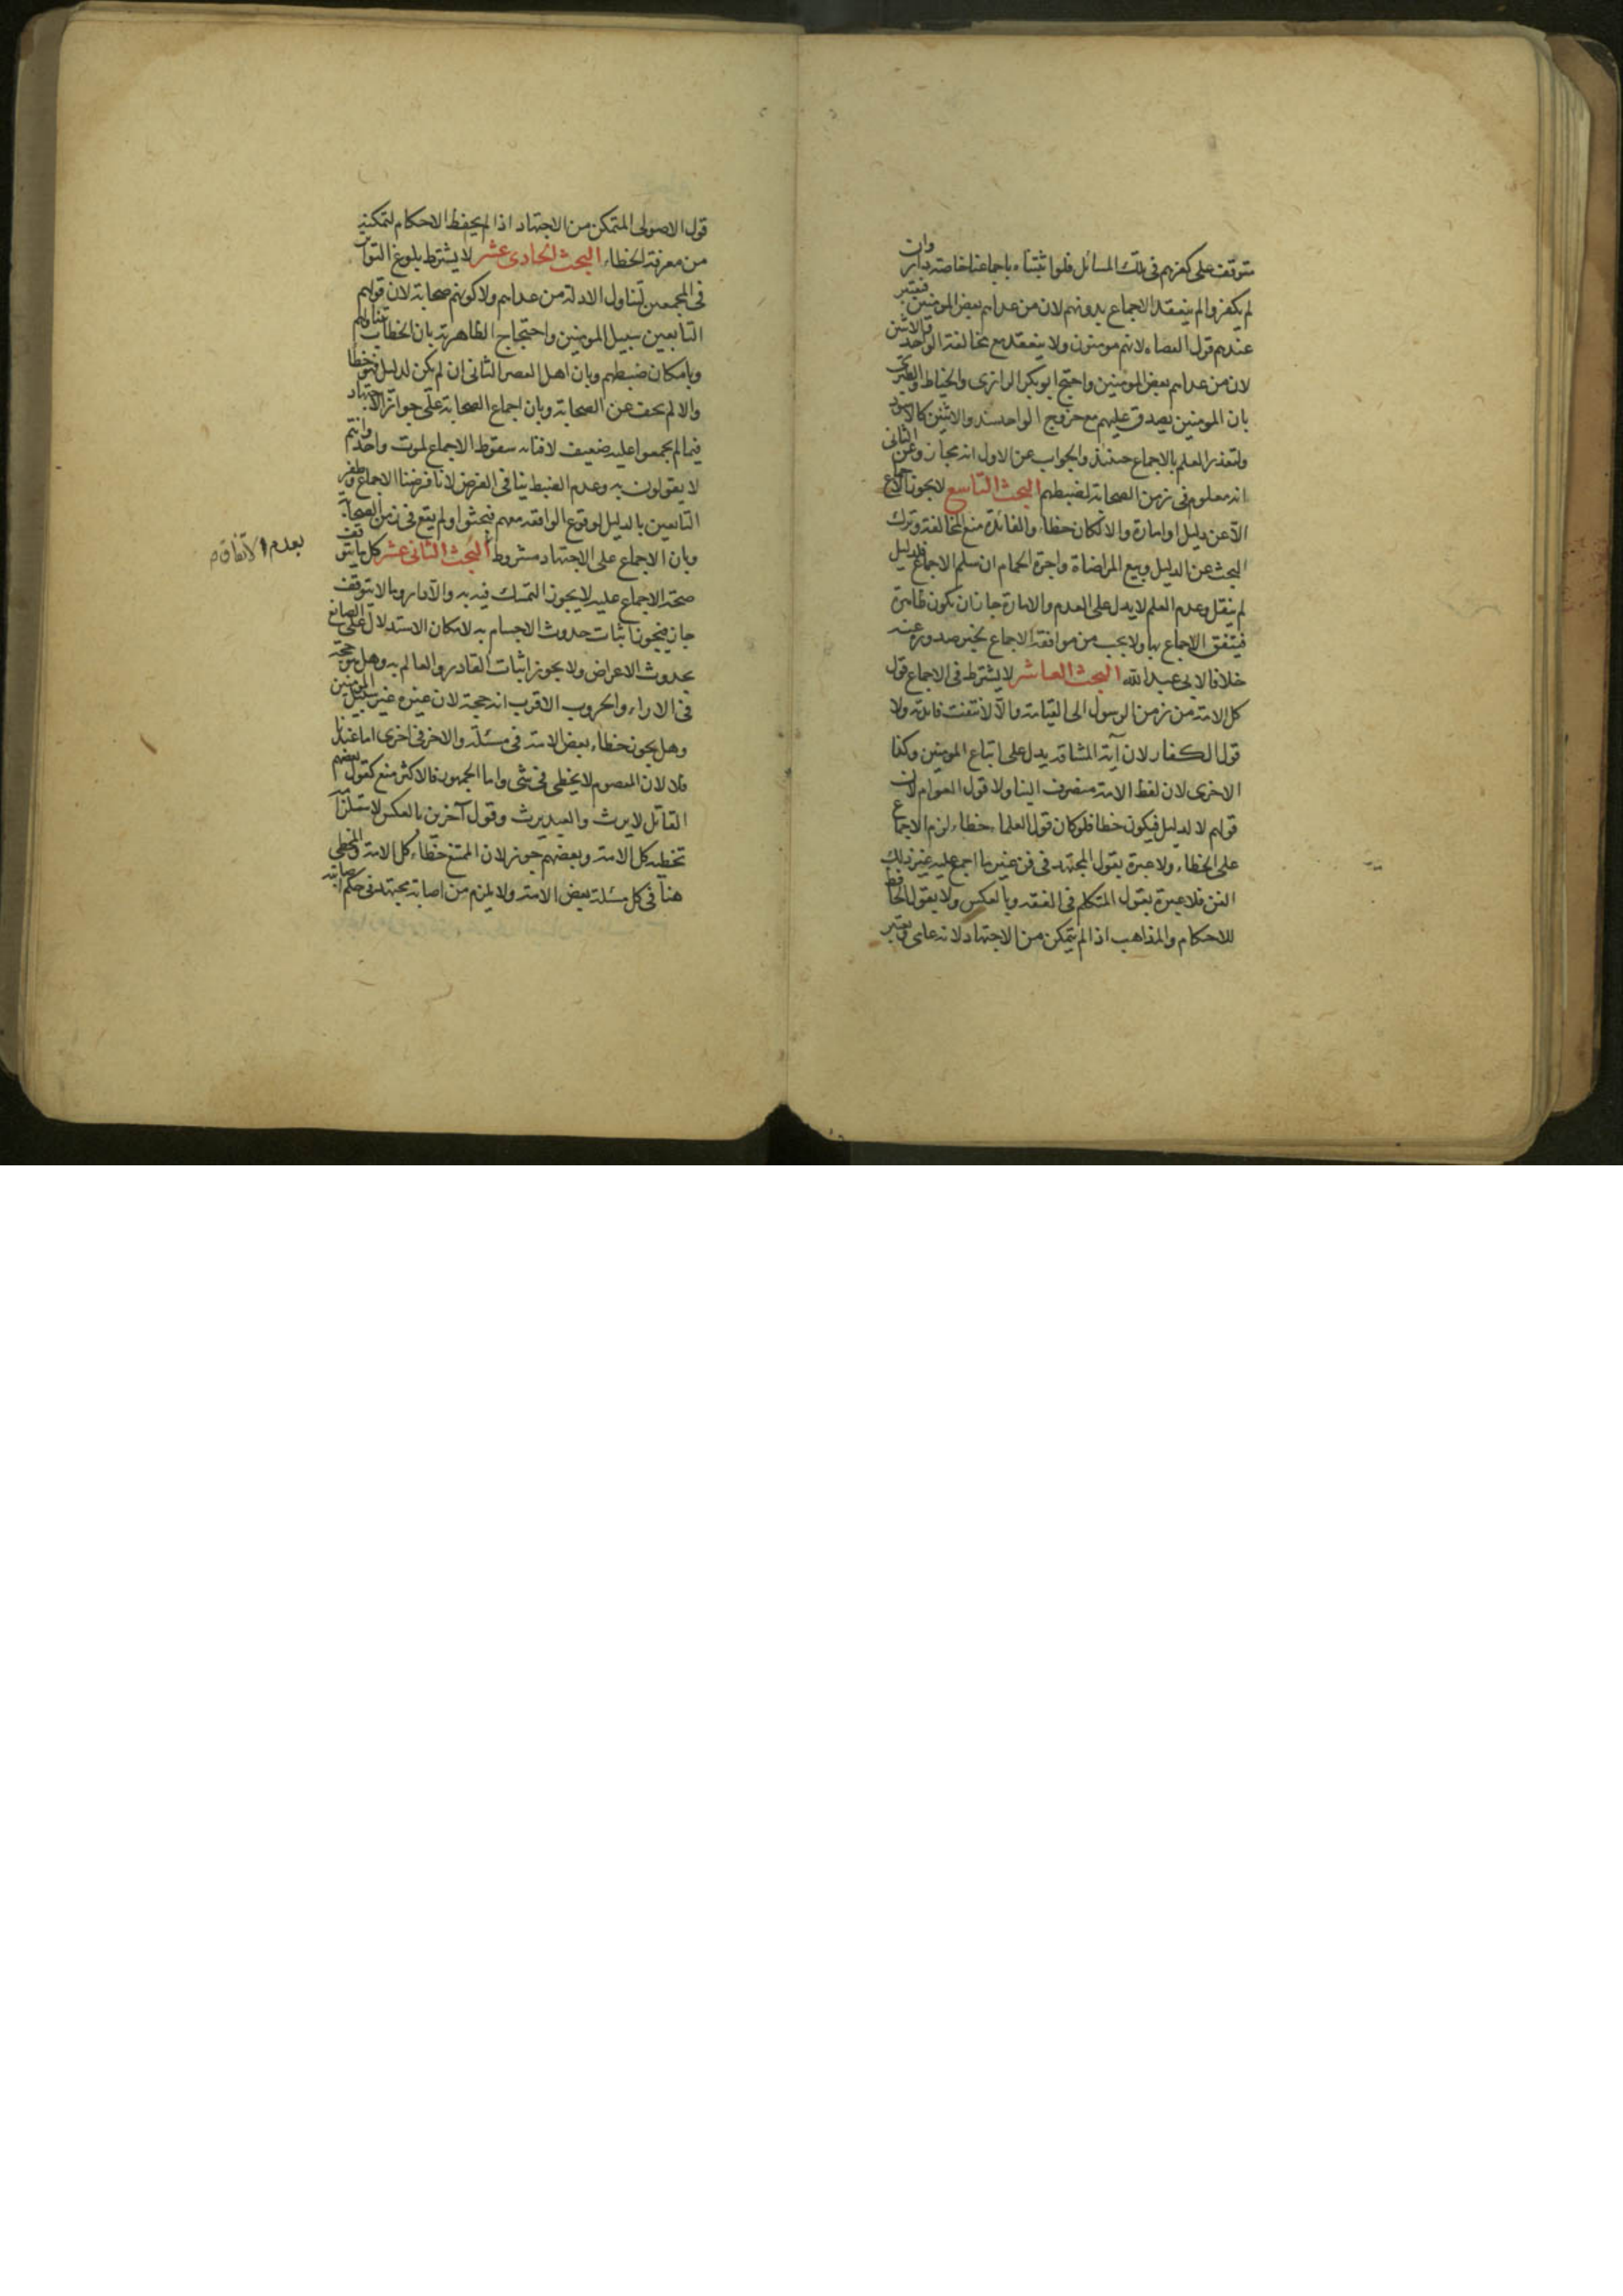 متوقف على كفرهم فى تلك المسائل فلو اثبتناه باجماعنا خاصة دار وان
لم يكفروا لم ينعقد الاجماع بدونهم لان من عداهم بعض المومنين فيعتبر
عندهم قول العصاة لانهم مومنون ولا ينعقد مع مخالفة الواحد والاثنين
لان من عداهم بعض المومنين واحتج ابو بكر الرازى والخياط والطبرى
بان المومنين يصدق عليهم مع خروج الواحد والاثنين كالاسود
ولتعذر العلم بالاجماع حينئذ والجواب عن الاول انه مجاز وعن الثانى
انه معلوم فى زمن الصحابة لضبطهم البحث التاسع لا يجوز الاجماع
الا عن دليل او امارة والا لكان خطاء والفائدة منع المخالفة وترك
البحث عن الدليل وبيع المراضاة واجرة الحمام ان سلم الاجماع فلدليل
لم ينقل وعدم العلم لا يدل على العدم والامارة جاز ان يكون ظاهرة
فيتفق الاجماع بها ولا يجب من موافقة الاجماع بخبر صدوره عنه
خلافا لابى عبد الله البحث العاشر لا يشترط فى الاجماع قول
كل الامة من زمن الرسول الى القيامة والا لانتفت فائدته ولا
قول الكفار لان آية المشاقة يدل على اتباع المومنين وكذا
الاخرى لان لفظ الامة منصرف الينا ولا قول العوام لان
قولهم لا لدليل فيكون خطا فلو كان قول العلماء خطاء لزم الاجماع
على الخطاء ولا عبرة بقول المجتهد فى فن غير ما اجمع عليه غير ذلك
الفن فلا عبرة بقول المتكلم فى الفقه وبالعكس ولا بقول الحافظ
للاحكام والمذاهب اذا لم يتمكن من الاجتهاد لانه عامى ويعتبر
قول الاصولى المتمكن من الاجتهاد اذا لم يحفظ الاحكام لتمكنه
من معرفة الخطاء البحث الحادى عشر لا يشترط بلوغ التواتر
فى المجمعين لتناول الادلة من عداهم ولا كونهم صحابة لان قولهم
التابعين سبيل المومنين واحتجاج الظاهرية بان الخطاب تناولهم
وبامكان ضبطهم وبان اهل العصر الثانى ان لم يكن لدليل فهو خطا
والا لم يخف عن الصحابة وبان اجماع الصحابة على جواز الاجتهاد
فيما لم يجمعوا عليه ضعيف لافتائه سقوط الاجماع لموت واحد وانتم
لا يقولون به وعدم الضبط ينافى الفرض لانا فرضنا الاجماع وظفر
التابعين بالدليل لوقوع الواقعة معهم فبحثوا ولم يقع فى زمن الصحابة
وبان الاجماع على الاجتهاد مشروط البحث الثانى عشر كل ما يتوقف
بعدم الاتفاق م
صحة الاجماع عليه لا يجوز التمسك فيه به والا دار وما لا يتوقف
جاز فيجوز اثبات حدوث الاجسام به لامكان الاستدلال على الصانع
بحدوث الاعراض ولا يجوز اثبات القادر والعالم به وهل هو حجة
فى الاراء والحروب الاقرب انه حجة لان غيره غير سبيل المومنين
وهل يجوز خطاء بعض الامة فى مسئلة والاخر فى اخرى اما عندنا
فلا لان المعصوم لا يخطى فى شى واما الجمهور فالاكثر منع كقول بعضهم
القاتل لا يرث والعبد يرث وقول آخرين بالعكس لاستلزامه
تخطيه كل الامة وبعضهم جوز لان الممتنع خطاء كل الامة والمخطى
هنا فى كل مسئلة بعض الامة ولا يلزم من اصابة مجتهد فى حكم اصابته